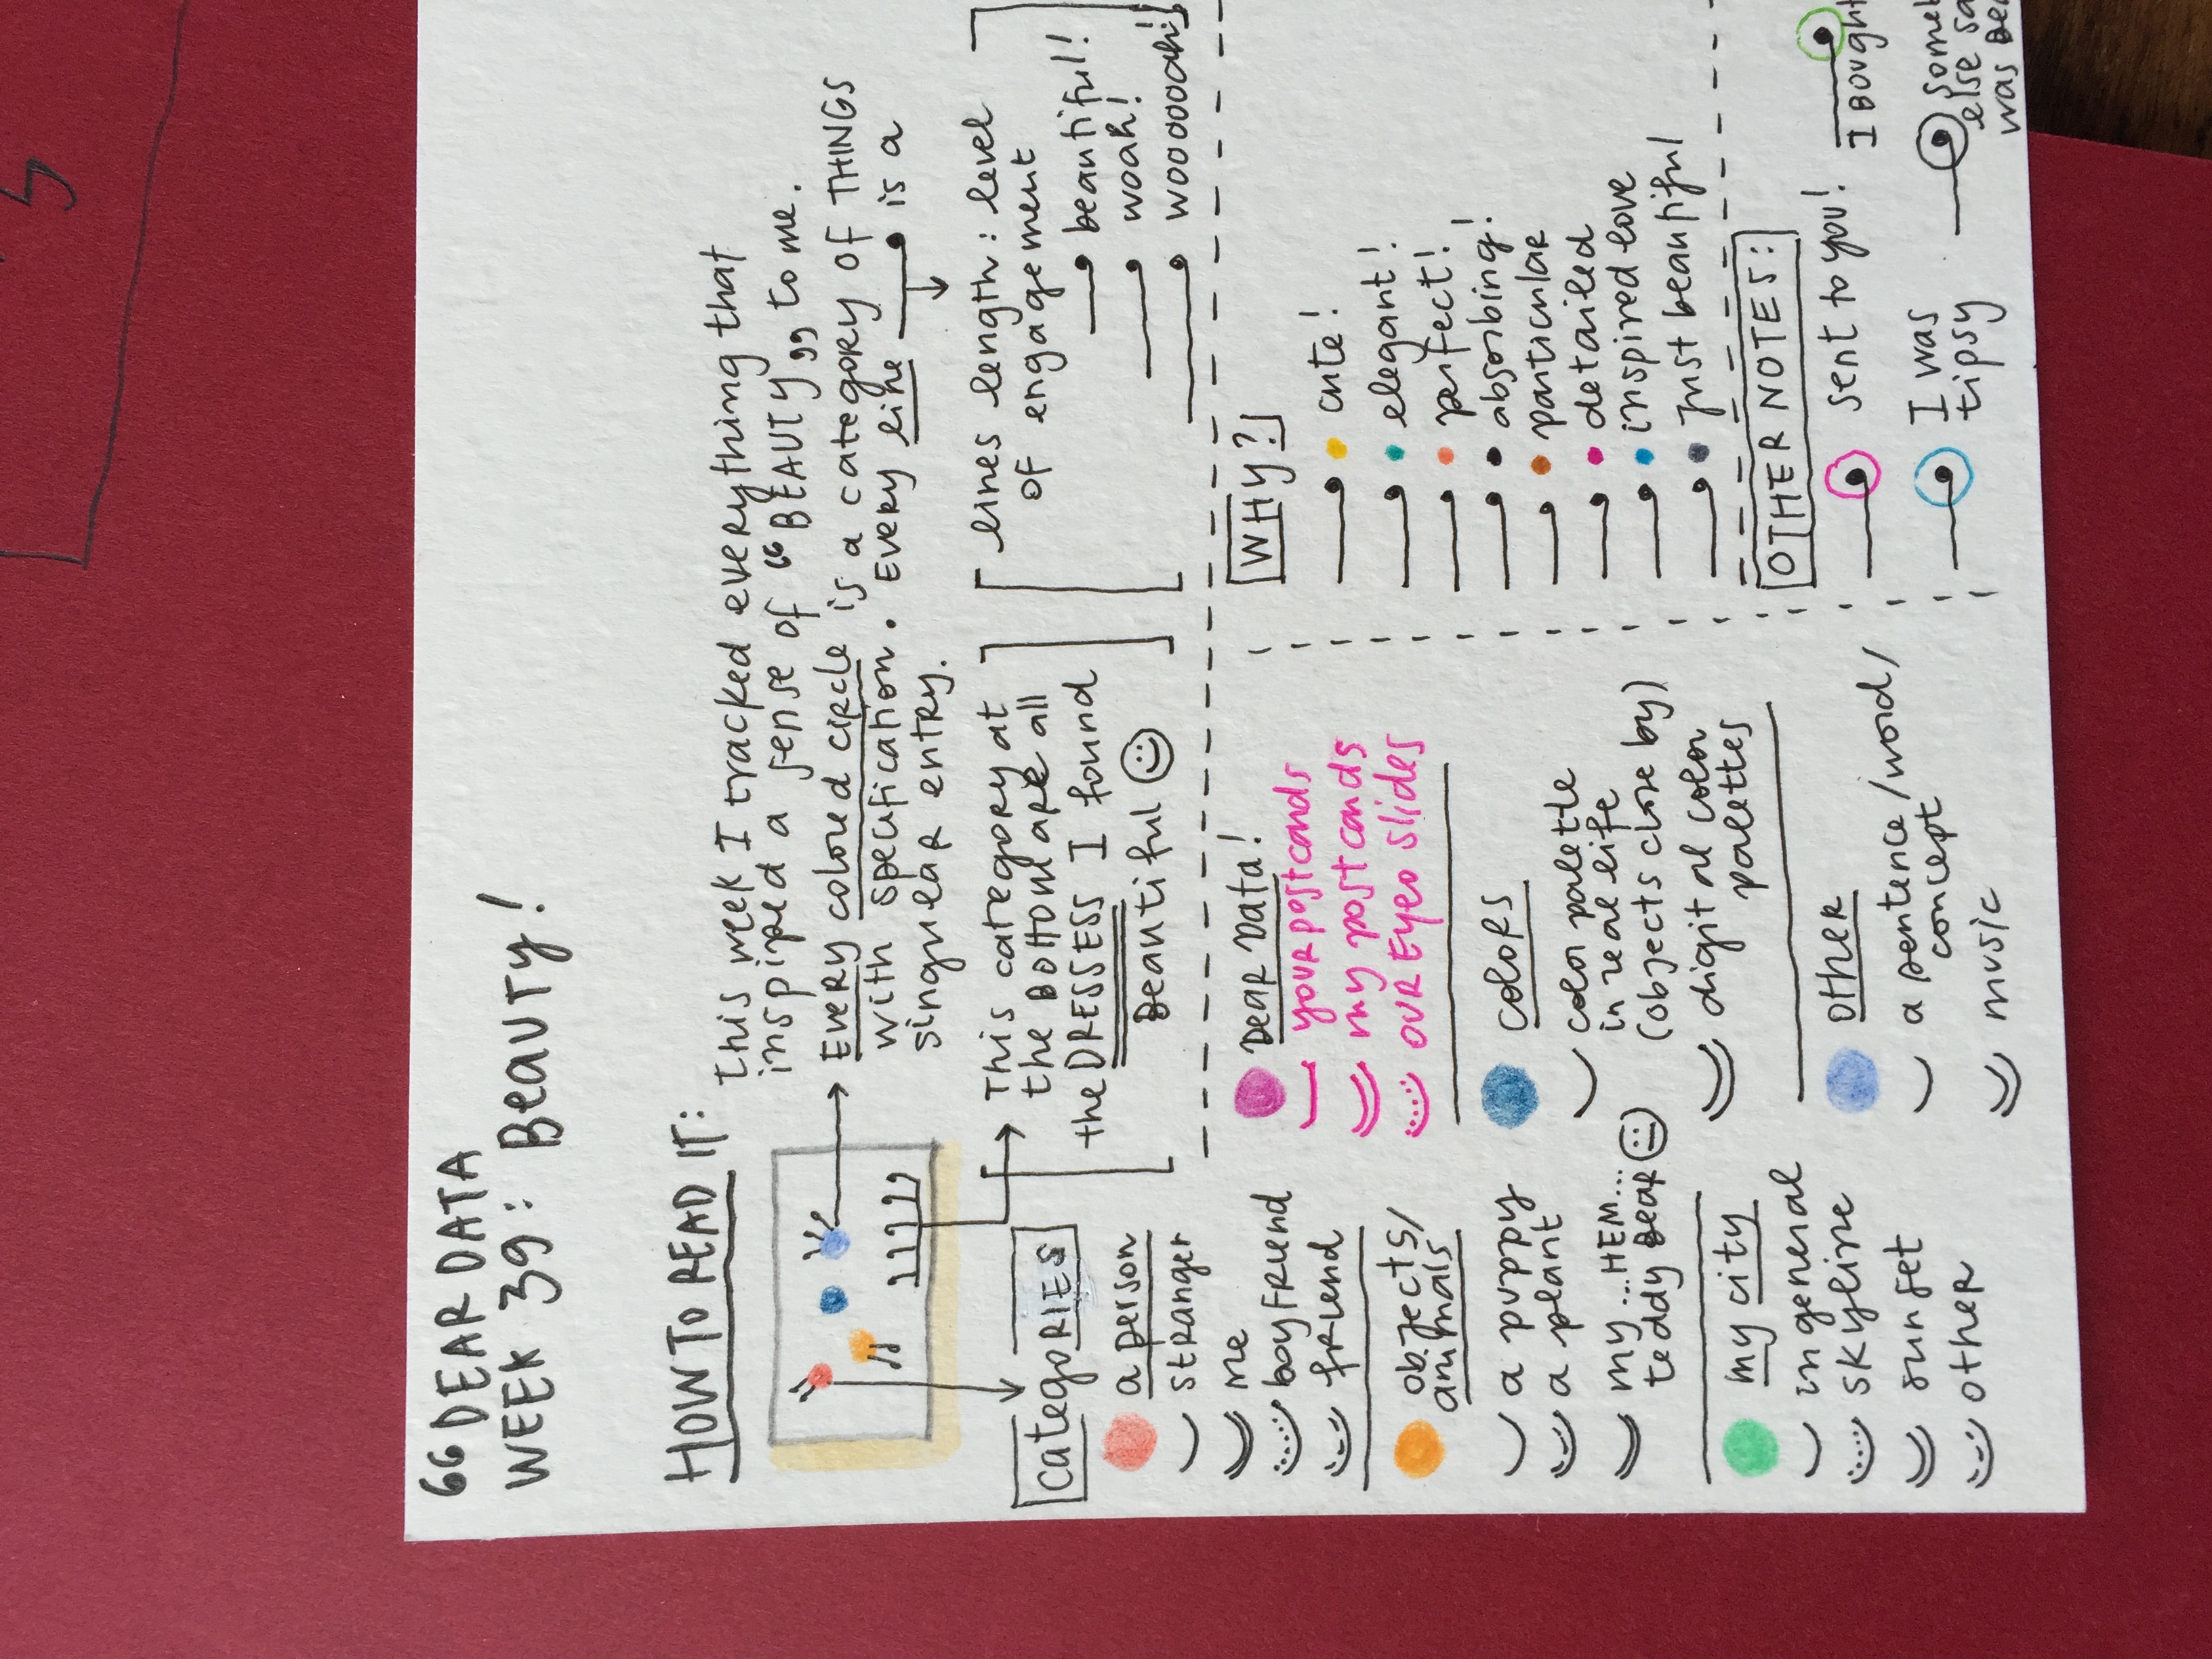 “DEAR DATA
WEEK 39: BEAUTY!
HOW TO READ IT:
This week I tracked everything that
inspired a sense of “BEAUTY„ to me.
Every coloured circle is a category of THINGS
with specification. Every line is a
singular entry.
This category at
the BOTTOM ARE all
the DRESSES I found
Beautiful
lines length: level
of engagement
beautiful!
woah!
woooooooah!
CATEGORIES
a person
stranger
me
boyfriend
friend
objects/
animals
a puppy
a plant
my ...HEM...
teddy Bear
my city
in general
skyline
sunset
other
DEAR DATA!
your postcards
my postcards
OUR Eyeo slides
COLORS
color palette
in real life
(objects close by)
digital color
palettes
OTHER
a sentence/word/
concept
music
WHY?
cute!
elegant!
perfect!
absorbing!
particular
detailed
inspired love
just beautiful
OTHER NOTES:
sent to you!
I Bought
I was
tipsy
else
was